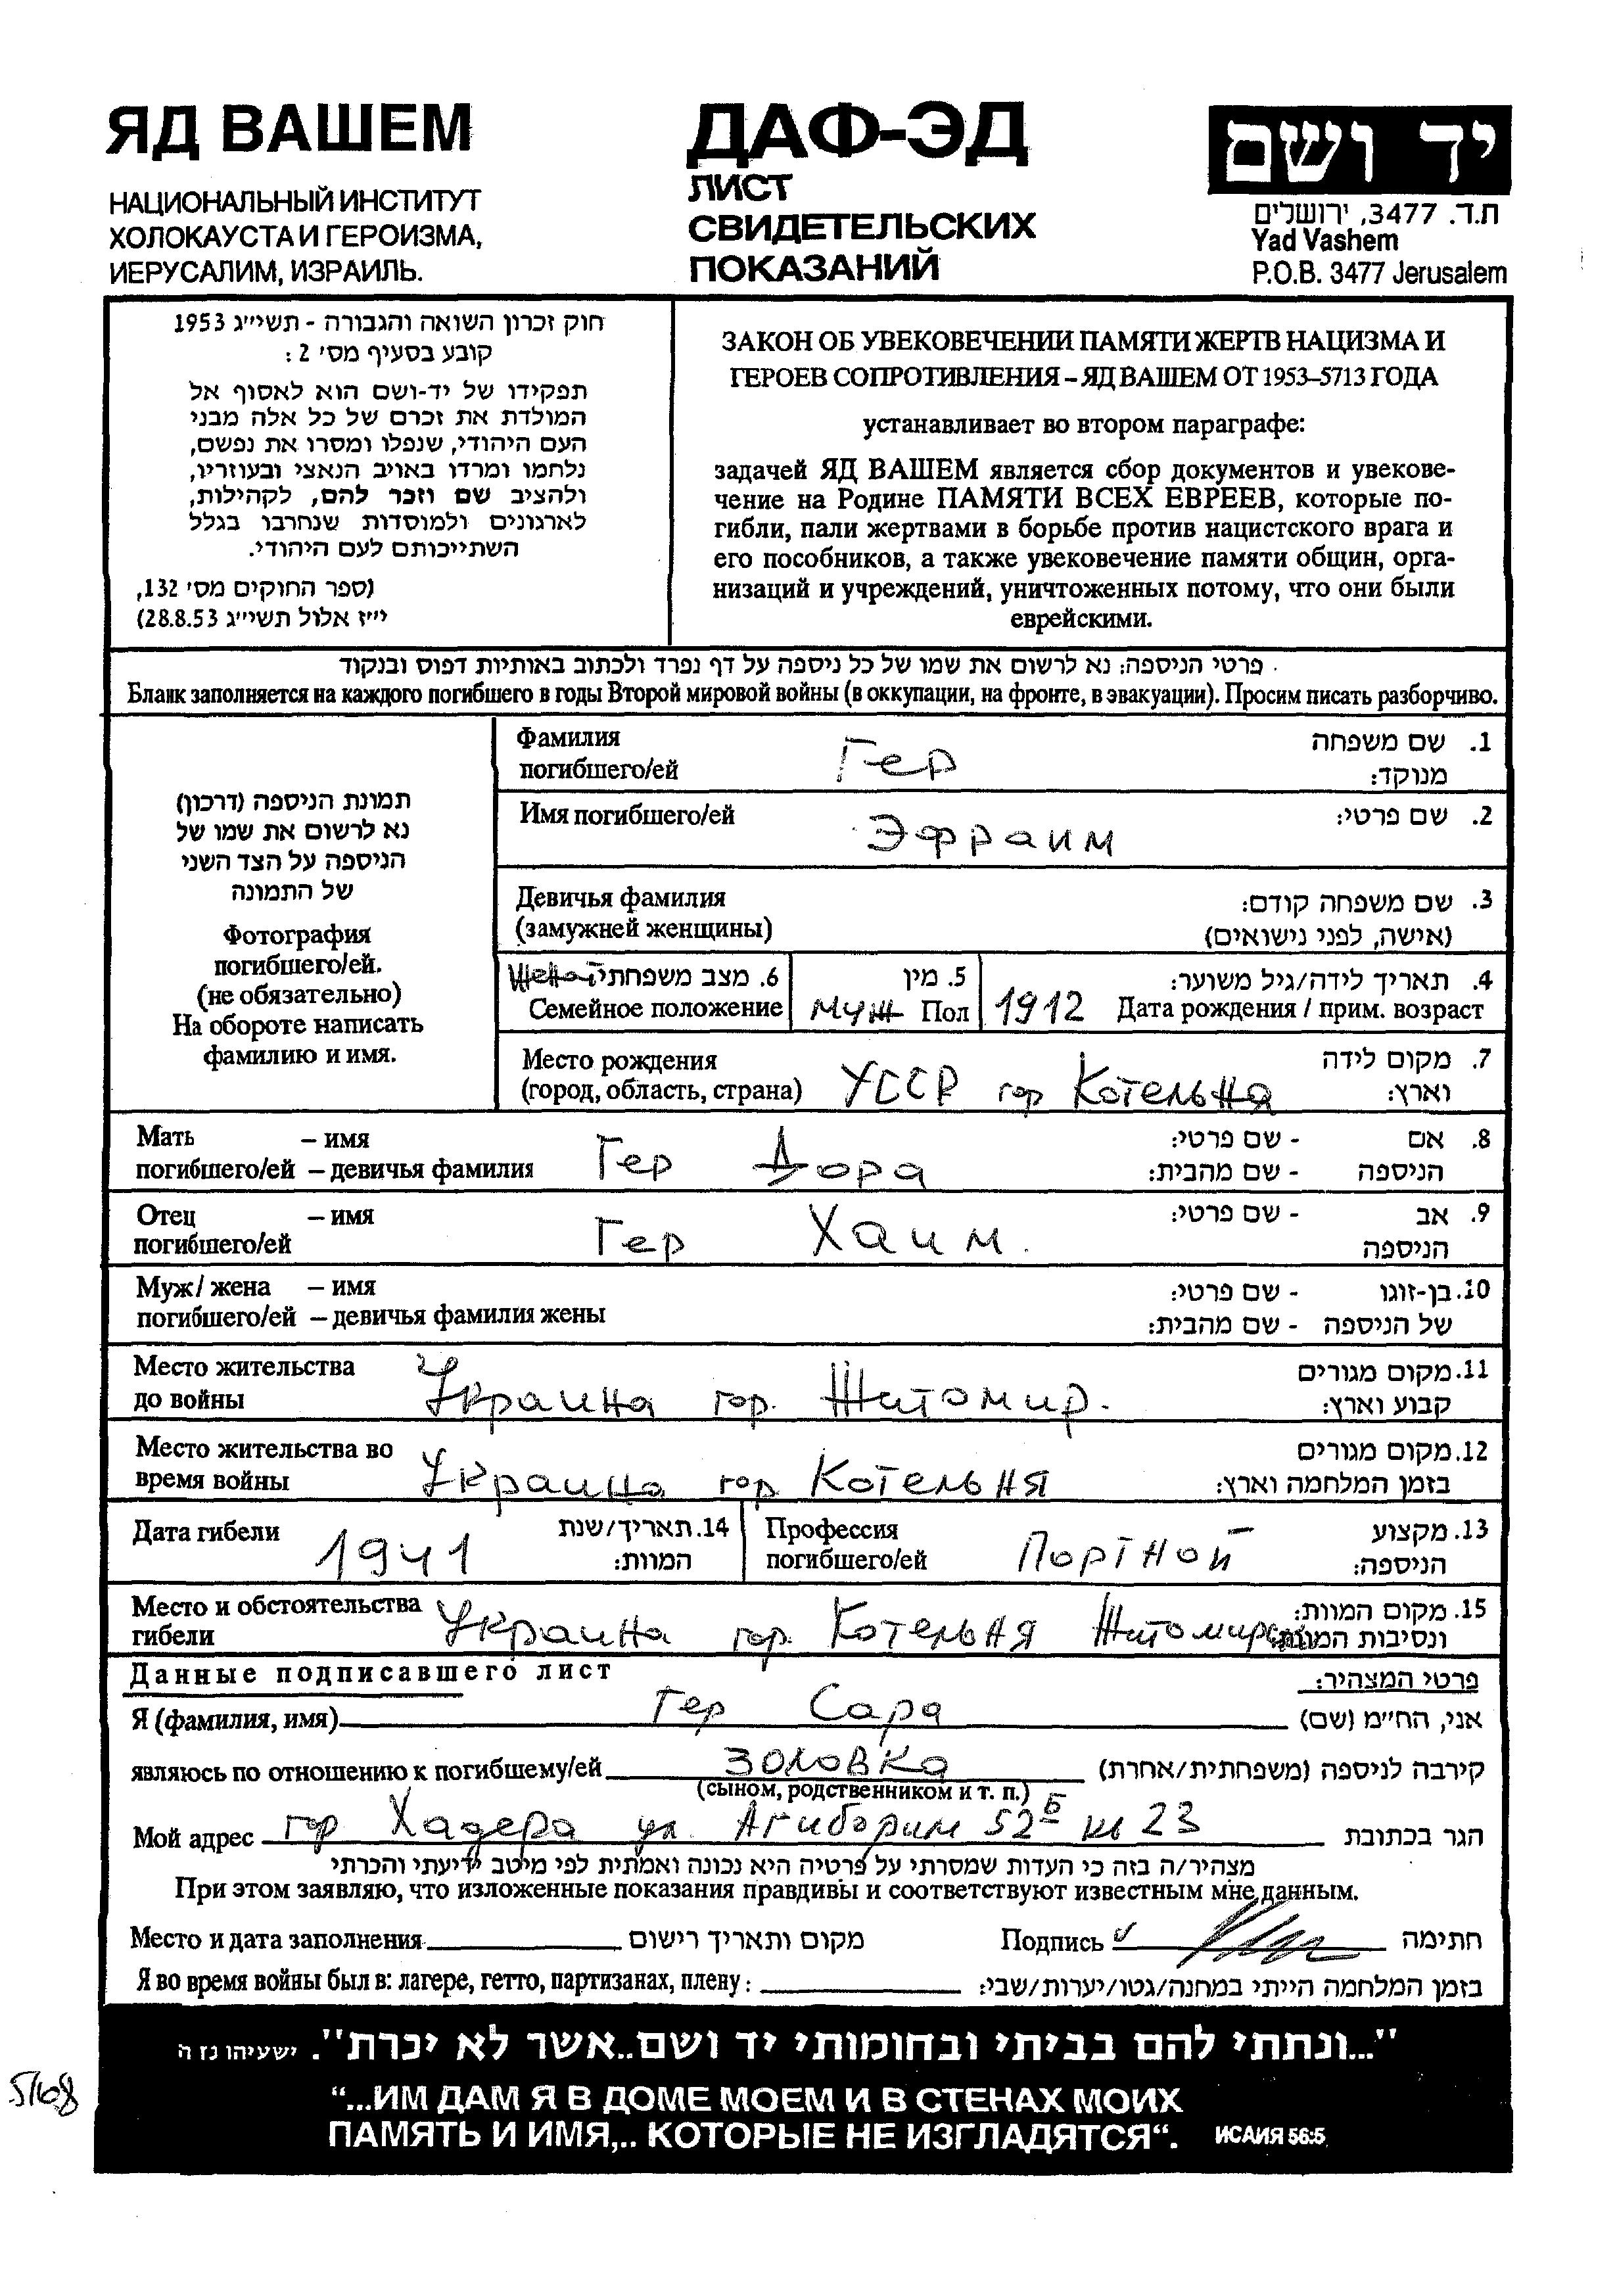 ЯД ВАШЕМ
НАЦИОНАЛЬНЫЙ ИНСТИТУТ
ХОЛОКАУСТА И ГЕРОИЗМА,
ИЕРУСАЛИМ, ИЗРАИЛЬ.
ДАФ-ЭД
ЛИСТ
СВИДЕТЕЛЬСКИХ
ПОКАЗАНИЙ
יד ושם
ת.ד. 3477, ירושלים
Yad Vashem
P.O.B. 3477 Jerusalem
חוק זכרון השואה והגבורה - תשי״ג 1953
קובע בסעיף מס׳ 2:
תפקידו של יד-ושם הוא לאסוף אל
המולדת את זכרם של כל אלה מבני
העם היהודי, שנפלו ומסרו את נפשם,
נלחמו ומרדו באויב הנאצי ובעוזריו,
ולהציב שם וזכר להם, לקהילות,
לארגונים ולמוסדות שנחרבו בגלל
השתייכותם לעם היהודי.
(ספר החוקים מס׳ 132,
י״ז אלול תשי״ג 28.8.53)
ЗАКОН ОБ УВЕКОВЕЧЕНИИ ПАМЯТИ ЖЕРТВ НАЦИЗМА И
ГЕРОЕВ СОПРОТИВЛЕНИЯ – ЯД ВАШЕМ ОТ 1953–5713 ГОДА
устанавливает во втором параграфе:
задачей ЯД ВАШЕМ является сбор документов и увекове-
чение на Родине ПАМЯТИ ВСЕХ ЕВРЕЕВ, которые по-
гибли, пали жертвами в борьбе против нацистского врага и
его пособников, а также увековечение памяти общин, орга-
низаций и учреждений, уничтоженных потому, что они были
еврейскими.
פרטי הניספה: נא לרשום את שמו של כל ניספה על דף נפרד ולכתוב באותיות דפוס ובנקוד
Бланк заполняется на каждого погибшего в годы Второй мировой войны (в оккупации, на фронте, в эвакуации). Просим писать разборчиво.
תמונת הניספה (דרכון)
נא לרשום את שמו של
הניספה על הצד השני
של התמונה
Фотография
погибшего/ей.
(не обязательно)
На обороте написать
фамилию и имя.
Фамилия
погибшего/ей Гер
1. שם משפחה
מנוקד:
Имя погибшего/ей Эфраим 2. שם פרטי:
Девичья фамилия
(замужней женщины)
3. שם משפחה קודם:
(אישה, לפני נישואים)
женат 6. מצב משפחתי
Семейное положение
5. מין
муж Пол
4. תאריך לידה/גיל משוער:
1912 Дата рождения / прим. возраст
Место рождения
(город, область, страна) УССР гор Котельня
7. מקום לידה
וארץ:
Мать – имя
погибшего/ей – девичья фамилия Гер Дора
8. אם - שם פרטי:
הניספה - שם מהבית:
Отец – имя
погибшего/ей Гер Хаим.
9. אב - שם פרטי:
הניספה
Муж/ жена – имя
погибшего/ей – девичья фамилия жены
10. בן-זוגו - שם פרטי:
של הניספה - שם מהבית:
Место жительства
до войны Украина гор. Житомир.
11. מקום מגורים
קבוע וארץ:
Место жительства во
время войны Украина гор Котельня
12. מקום מגורים
בזמן המלחמה וארץ:
Дата гибели 1941
14. תאריך/שנת
המוות:
Профессия
погибшего/ей Портной
13. מקצוע
הניספה:
Место и обстоятельства
гибели Украина гор. Котельня
15. מקום המוות:
ונסיבות המוות:
Данные подписавшего лист פרטי המצהיר:
Я (фамилия, имя) Гер Сара אני, הח״מ (שם)
являюсь по отношению к погибшему/ей золовка קירבה לניספה (משפחתית/אחרת)
(сыном, родственником и т. п.)
Мой адрес гор Хадера ул. Агиборим 52 Б кв 23 הגר בכתובת
מצהיר/ה בזה כי העדות שמסרתי על פרטיה היא נכונה ואמתית לפי מיטב ידיעתי והכרתי
При этом заявляю, что изложенные показания правдивы и соответствуют известным мне данным.
Место и дата заполнения מקום ותאריך רישום Подпись חתימה
Я во время войны был в: лагере, гетто, партизанах, плену: בזמן המלחמה הייתי במחנה/גטו/יערות/שבי:
"...ונתתי להם בביתי ובחומותי יד ושם..אשר לא יכרת". ישעיהו נז ה
“...ИМ ДАМ Я В ДОМЕ МОЕМ И В СТЕНАХ МОИХ
ПАМЯТЬ И ИМЯ,.. КОТОРЫЕ НЕ ИЗГЛАДЯТСЯ“. ИСАИЯ 56:5